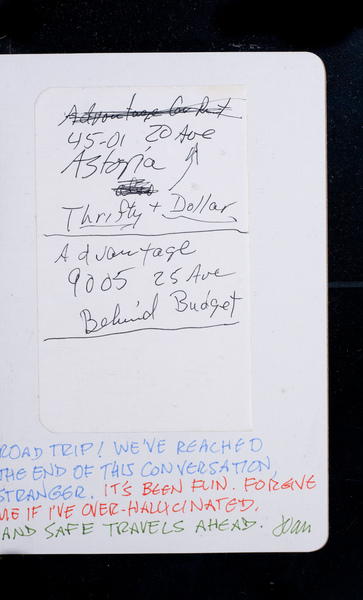 Advantage Car Rent
45-01 20 Ave
Astoria
Thrifty + Dollar
Advantage
9005 25 Ave
Behind Budget
ROAD TRIP! WE'VE REACHED
THE END OF THIS CONVERSATION,
STRANGER. IT'S BEEN FUN. FORGIVE
ME IF I'VE OVER-HALLUCINATED,
AND SAFE TRAVELS AHEAD. Joan